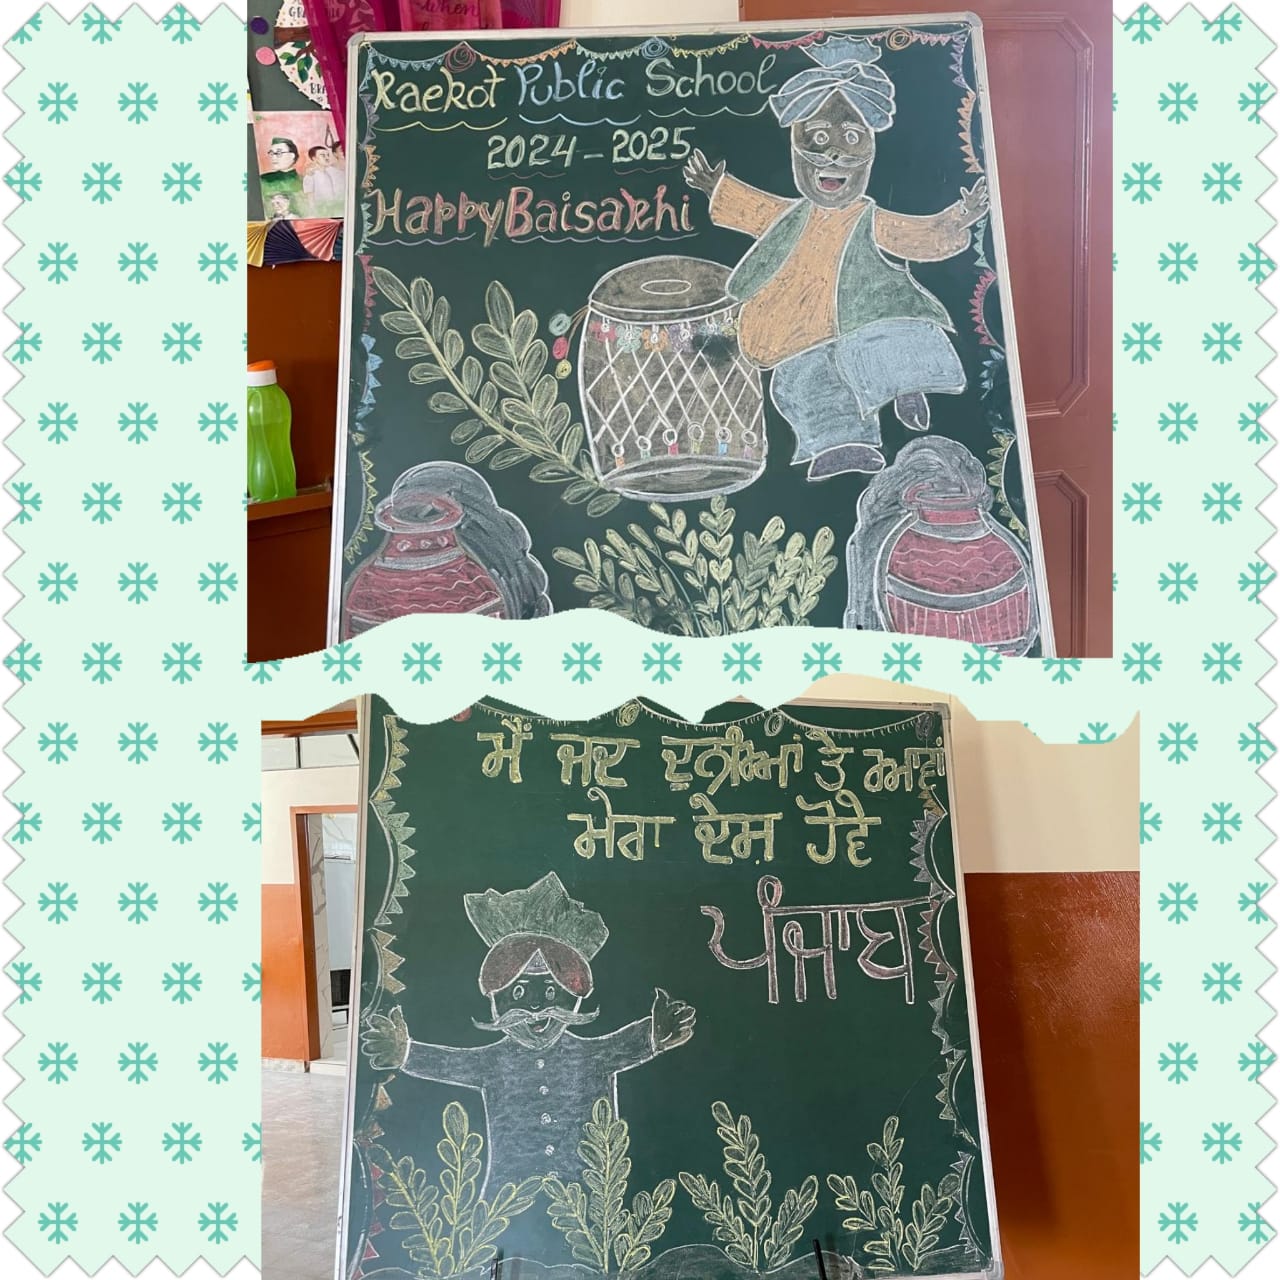 Raekot Public School
2024-2025
Happy Baisakhi
ਮੈਂ ਜਦ ਦੁਨੀਆਂ ਤੇ ਆਵਾਂ
ਮੇਰਾ ਦੇਸ਼ ਹੋਵੇ
ਪੰਜਾਬ